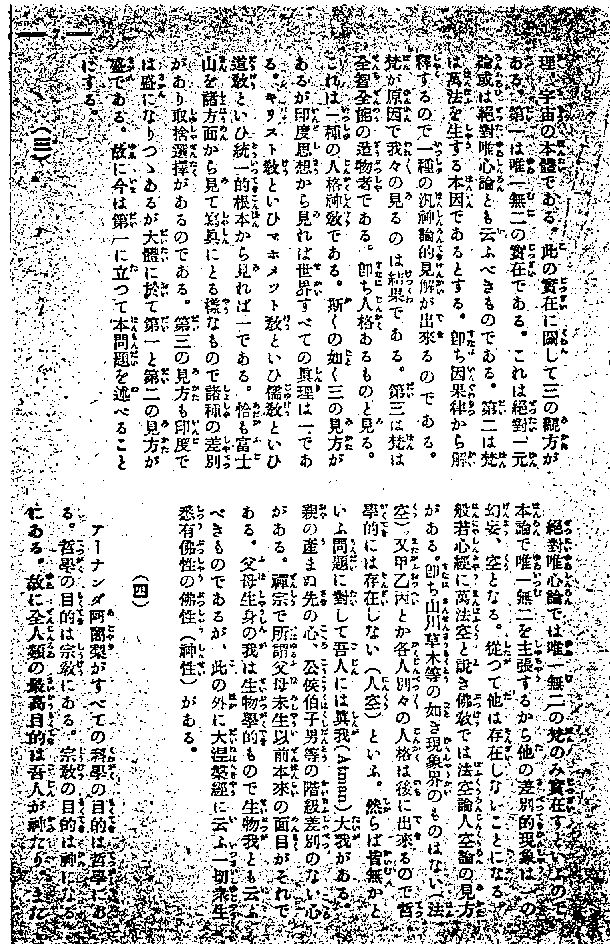 理、宇宙の本體である。此の實在に關して三の觀方が
ある。第一は唯一無二の實在である。これは絕對一元
論或は絕對唯心論とも云ふべきものである。第二は梵
は萬法を生する本因であるとする。卽ち因果律から解
釋するので一種の汎神論的見解が出來るのである。
梵が原因で我々の見るのは結果である。第三は梵は
全智全能の造物者である。卽ち人格あるものと見る。
これは一種の人格神敎である。斯くの如く三の見方が
あるが印度思想から見れば世界すべての眞理は一であ
る。キリスト敎といひマホメツト敎といひ儒敎といひ
道敎といひ統一的根本から見れば一である。恰も富士
山を諸方面から見て寫眞にとる樣なもので諸種の差別
があり取捨選擇があるのである。第三の見方も印度で
は盛になりつゝあるが大體に於て第一と第二の見方が
盛である。故に今は第一に立つて本問題を述べること
にする。
(三)
絕對唯心論では唯一無二の梵のみ實在すといふので
本論で唯一無二を主張するから他の差別的現象は一の
幻妄、空となる。從つて他は存在しないことになる。
般若心經に萬法空と說き佛敎では法空論人空論の見方
がある。卽ち山川草木等の如き現象界のものはない(法
空)又甲乙丙とか各人別々の人格は後に出來るので哲
學的には存在しない(人空)といふ。然らば皆無かと
いふ問題に對して吾人には眞我(Atman)大我がある。
親の產まぬ先の心、公侯伯子男等の階級差別のない心
がある。禪宗で所謂父母未生以前本來の面目がそれで
ある。父母生身の我は生物學的もので生物我とも云ふ
べきものであるが、此の外に大涅槃經に云ふ一切衆生
悉有佛性の佛性(神性)がある。
(四)
アーナンダ阿闍梨がすべての科學の目的は哲學にあ
る。哲學の目的は宗敎にある。宗敎の目的は神になる
にある。故に全人類の最高目的は吾人が神たり、また